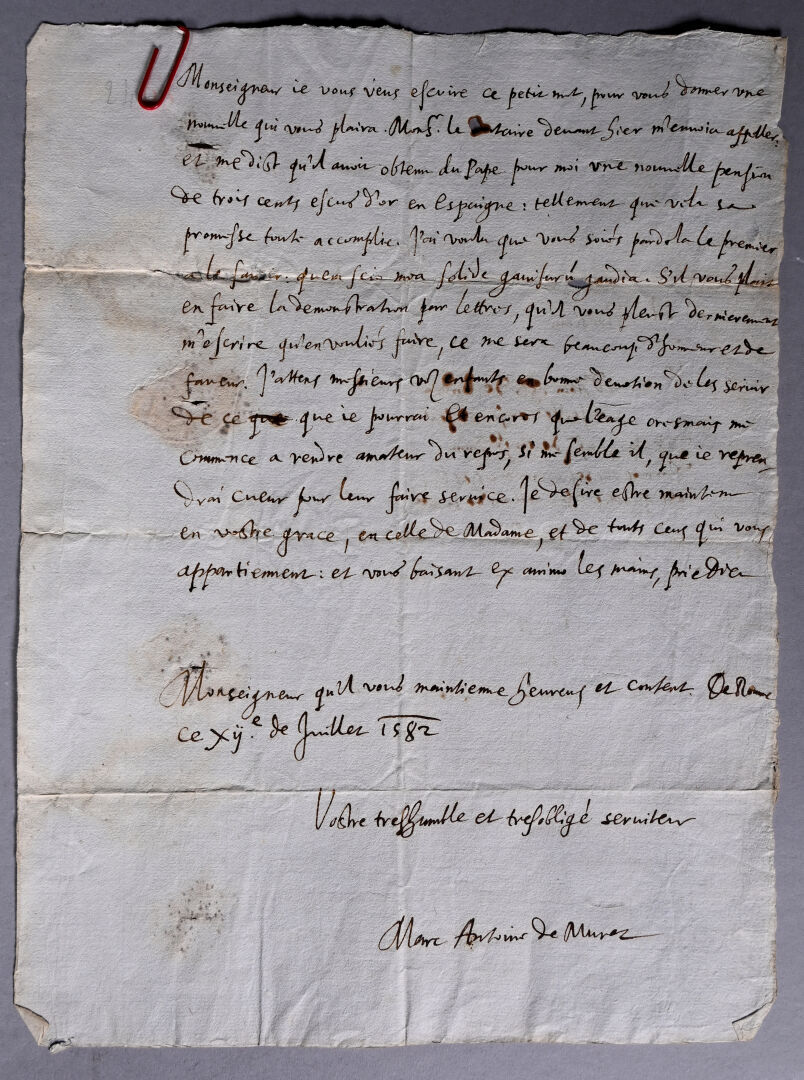 Monseigneur ie vous veus escrire ce petit mot, pour vous donner une
nouvelle qui vous plaira. Monsr. le taire devant hier m'envoia appeller,
et me dist qu'il avoit obtenu du Pape pour moi une nouvelle pension
de trois cents escus d'or en Espaigne: tellement que vela sa
promesse toute accomplie. J'ai voulu que vous soiés par dela le premier
a le savoir. solide gavisurum gaudia. S'il vous plait
en faire la demonstration par lettres, qu'il vous pleust dernierement
m'escrire qu'en vouliés faire, ce me sera beaucoup d'honneur et de
faveur. J'attens messieurs voz enfants en bonne devotion de les servir
de ce que ie pourrai Et encores que l'eage oresmais me
commence a rendre amateur du repos, si me semble il, que ie repren-
drai cueur pour leur faire service. Je desire estre maintenu
en vostre grace, en celle de Madame, et de touts ceus qui vous
appartiennent: et vous baisant ex animo les mains, prie Dieu
Monseigneur qu'il vous maintienne heureus et content. De Rome
ce xij.e de Juillet 1582
Vostre treshumble et tresobligé serviteur
Marc Antoine de Muret